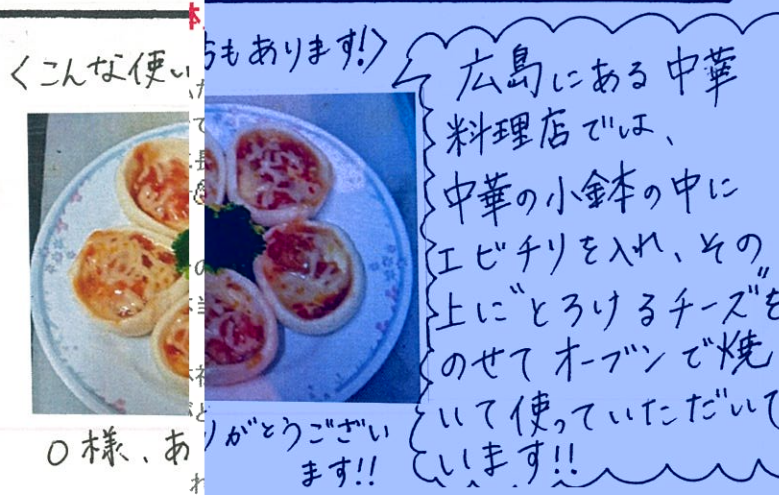 〈こんな使い
方もあります!〉
O様、あ
りがとうござい
ます!!
広島にある中華
料理店では、
中華の小鉢の中に
エビチリを入れ、その
上に"とろけるチーズ"を
のせてオーブンで焼
いて使っていただいて
います!!